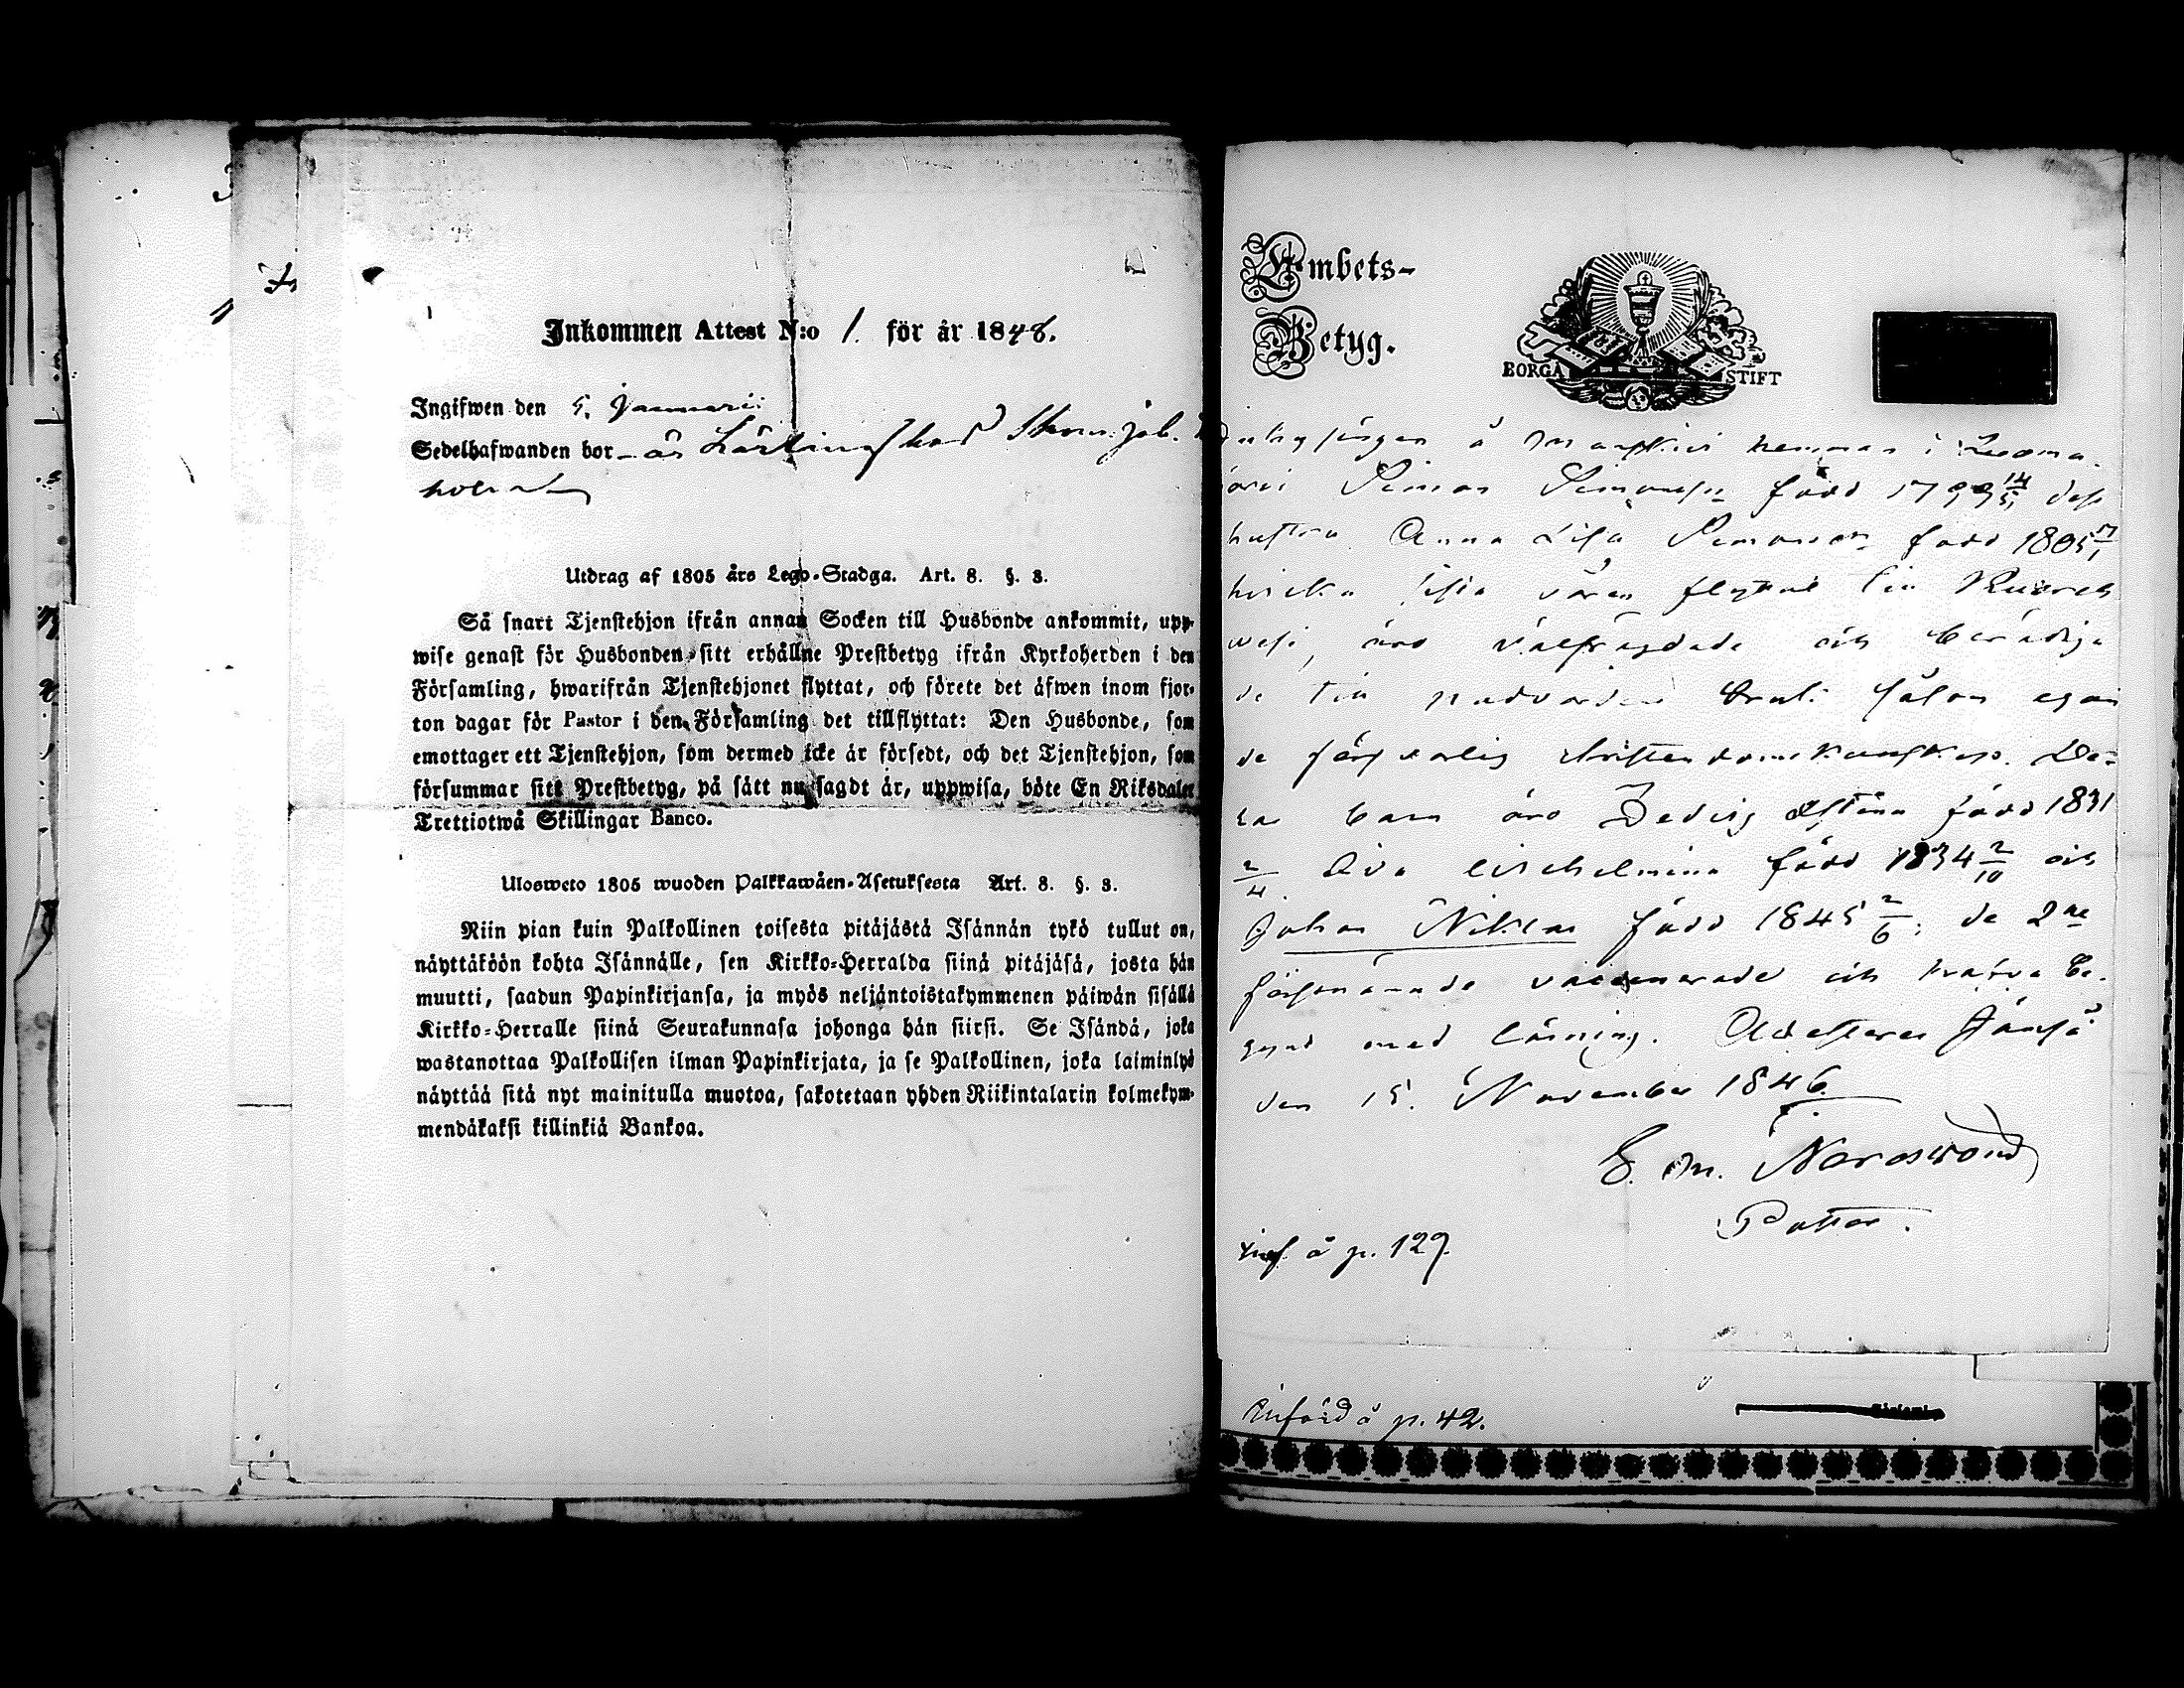 Inkommen Attest N:o 1. för år 1848.
Ingifwen den 5. Januarii
Sedelhafwanden bor - är Lärling hos
Utdrag af 1805 års Lego-Stadga. Art. 8. §. 3.
Så snart Tjenstehjon ifrån annan Socken till Husbonde ankommit, upp-
wise genast för Husbonden sitt erhållne Prestbetyg ifrån Kyrkoherden i den
Församling, hwarifrån Tjenstehjonet flyttat, och förete det äfwen inom fjor-
ton dagar för Pastor i den Församling det tillflyttat: Den Husbonde, som
emottager ett Tjenstehjon, som dermed icke är försedt, och det Tjenstehjon, som
försummar sitt Prestbetyg, på sätt nu sagdt är, uppwisa, böte En Riksdaler
Trettiotwå Skillingar Banco.
Ulosweto 1805 wuoden Palkkawäen-Asetuksesta Art. 8. §. 3.
Niin pian kuin Palkollinen toisesta pitäjästä Isännän tykö tullut on,
näyttäköön kohta Isännälle, sen Kirkko-Herralda siinä pitäjäsä, josta hän
muutti, saadun Papinkirjansa, ja myös neljäntoistakymmenen päiwän sisällä
Kirkko-Herralle siinä Seurakunnasa johonga hän siirsi. Se Isändä, joka
wastanottaa Palkollisen ilman Papinkirjata, ja se Palkollinen, joka laiminlyö
näyttää sitä nyt mainitulla muotoa, sakotetaan yhden Riikintalarin kolmekym-
mendäkaksi killinkiä Bankoa.
Embets-
Betyg.
BORGÅ STIFT
å hemman i
Simon Simonsson född 1799 14/5, dess
hustru Anna Lisa Simonsdr född 1805 17/1
hvilka sista våren flyttat till Ruoves
wesi, äro välfrägdade och berättiga
de till nattvarden samt såsom egan
de försvarlig christendomskunskap. De-
ras barn äro Hedvig Stina född 1831
2/4 Eva Wilhelmina född 1834 2/10 och
Johan Niklas född 1845 2/6; de 2ne
förstnämnde vaccinerade och hafva be-
gynt med läsning. Attesterar Jämsä
den 15. November 1846.
E. M. Nordswand
Pastor.
inf. å p. 129.
Införd å p. 42.